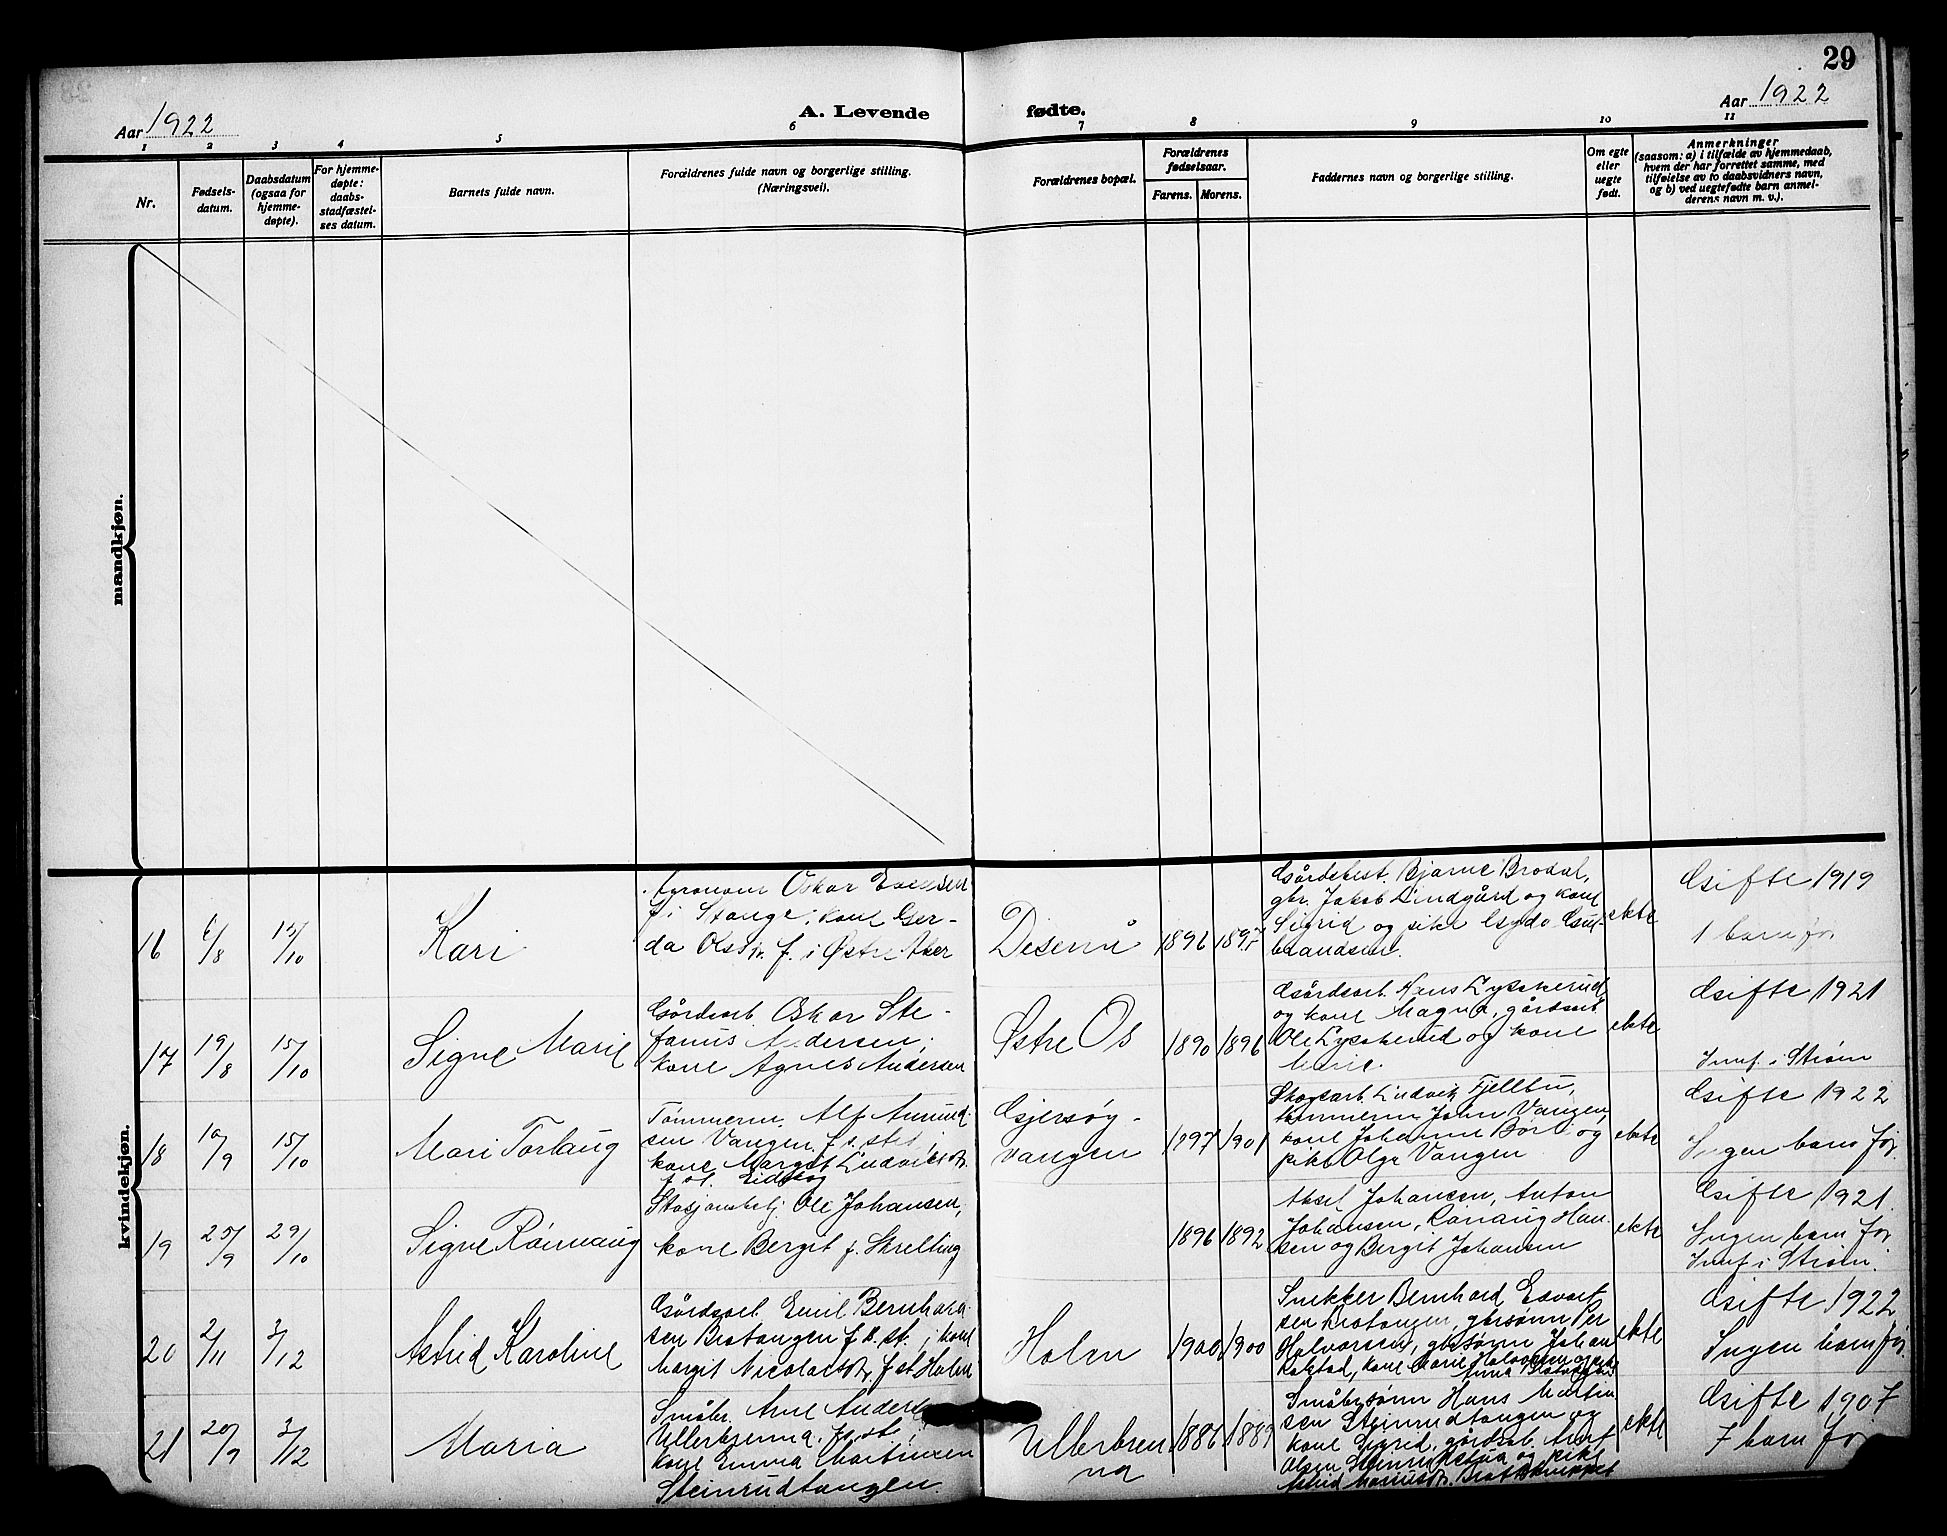 29
Aar 1922
A. Levende fødte.
Aar 1922
1 2 3 4 5 6 7 8 9 10 11
Nr.
Fødsels-
datum.
Daabsdatum
(ogsaa for
hjemme-
døpte).
For hjemme-
døpte:
daabs-
stadfæstel-
ses datum.
Barnets fulde navn.
Forældrenes fulde navn og borgerlige stilling.
(Næringsvei).
Forældrenes bopæl.
Forældrenes
fødselsaar.
Farens. Morens.
Faddernes navn og borgerlige stilling.
Om egte
eller
uegte
født.
Anmerkninger
(saasom: a) i tilfælde av hjemmedaab,
hvem der har forrettet samme, med
tilføielse av to daabsvidners navn,
og b) ved uegtefødte barn anmel-
derens navn m. v.).
mandkjøn.
kvindekjøn.
16
6/8
15/10
Kari
Agronom Oskar Evensen
f. i Stange; kone Ger-
da Olsdtr. f. i Østre Aker
Disenå
1896
Gårdsbest. Bjarne Brodal,
gbr. Jakob Lindgård og kone
Sigrid og pike Gyda Gul-
brandsen.
ekte
Gifte 1919
1 barn før
17
19/8
15/10
Signe Marie
Gårdsarb. Oskar Ste-
fanus Andersen;
kone Agnes Andersen
Østre Os
1890 1896
Gårdsarb. Hans Lyskerud
og kone Magna, gårdsarb.
Ole Lyskerud og kone
Marie.
ekte
Gifte 1921
Innf. i Strøm
18
10/9
15/10
Mari Torlaug
Tømmerm. Alf Amund-
sen Vangen f. s. st.;
kone Margit Ludviksdtr.
f. st. Eidskog
Gjersøy-
vangen
1897 1901
Skogsarb. Ludvik Fjellbu,
tømmerm. John Vangen,
kone Johanne Børli og
pike Olga Vangen
ekte
Gifte 1922
Ingen barn før
19
25/9
29/10
Signe Rønnaug
Stasjonsbetj. Ole Johansen,
kone Bergit f. Skrelting
1896 1892
Aksel Johansen, Anton
Johansen, Rønaug Han-
sen og Bergit Johansen
ekte
Gifte 1921.
Ingen barn før
Innf. i Strøm.
20
2/11
3/12
Astrid Karoline
Gårdsarb. Emil Bernhard-
sen Bratangen f. s. st.; kone
Margit Nicolaisdtr. f. st. Holm
Holm
1900 1900
Snekker Bernhard Edvart-
sen Bratangen, gbrsønn Per
Halvorsen, gbrsønn Johan
kone Marie Halvorsen og pike
Anna
ekte
Gifte 1922
Ingen barn før
21
20/9
3/12
Maria
Småbr. Arne Anders
Ullerbrenna, f. s. st.;
kone Emma Martinsen
Steinrudtangen.
Ullerbren
na
1886 1889
Småbr.sønn Hans Martin
sen Steinrudtangen og
kone Sigrid, gårdsarb.
Olsen og pike
Astrid
ekte
Gifte 1907
7 barn før